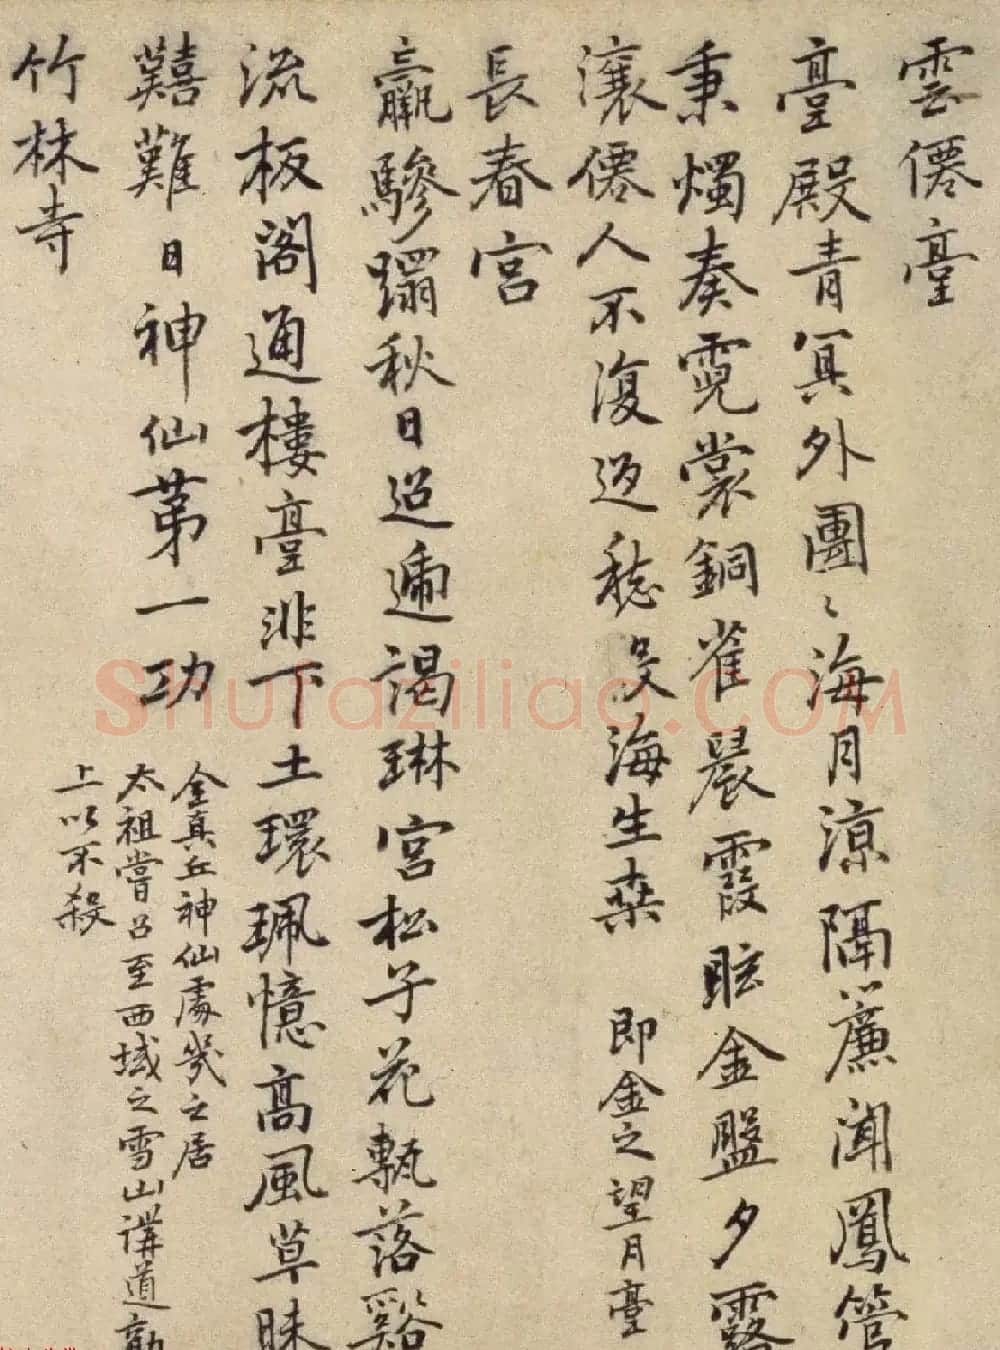 雲僊臺
臺殿青冥外團〻海月涼隔簾聞鳳管
秉燭奏霓裳銅雀晨霞眩金盤夕露
瀼僊人不復返海生桒 即金之望月臺
長春宮
羸驂躡秋日迢遞謁琳宮松子花甎落谿
流板閣通樓臺非下土環珮憶高風草昧
艱難日神仙第一功 全真丘神仙處幾之居
太祖嘗召至西域之雪山講道勸
上以不殺
竹林寺
Shufaziliao.COM